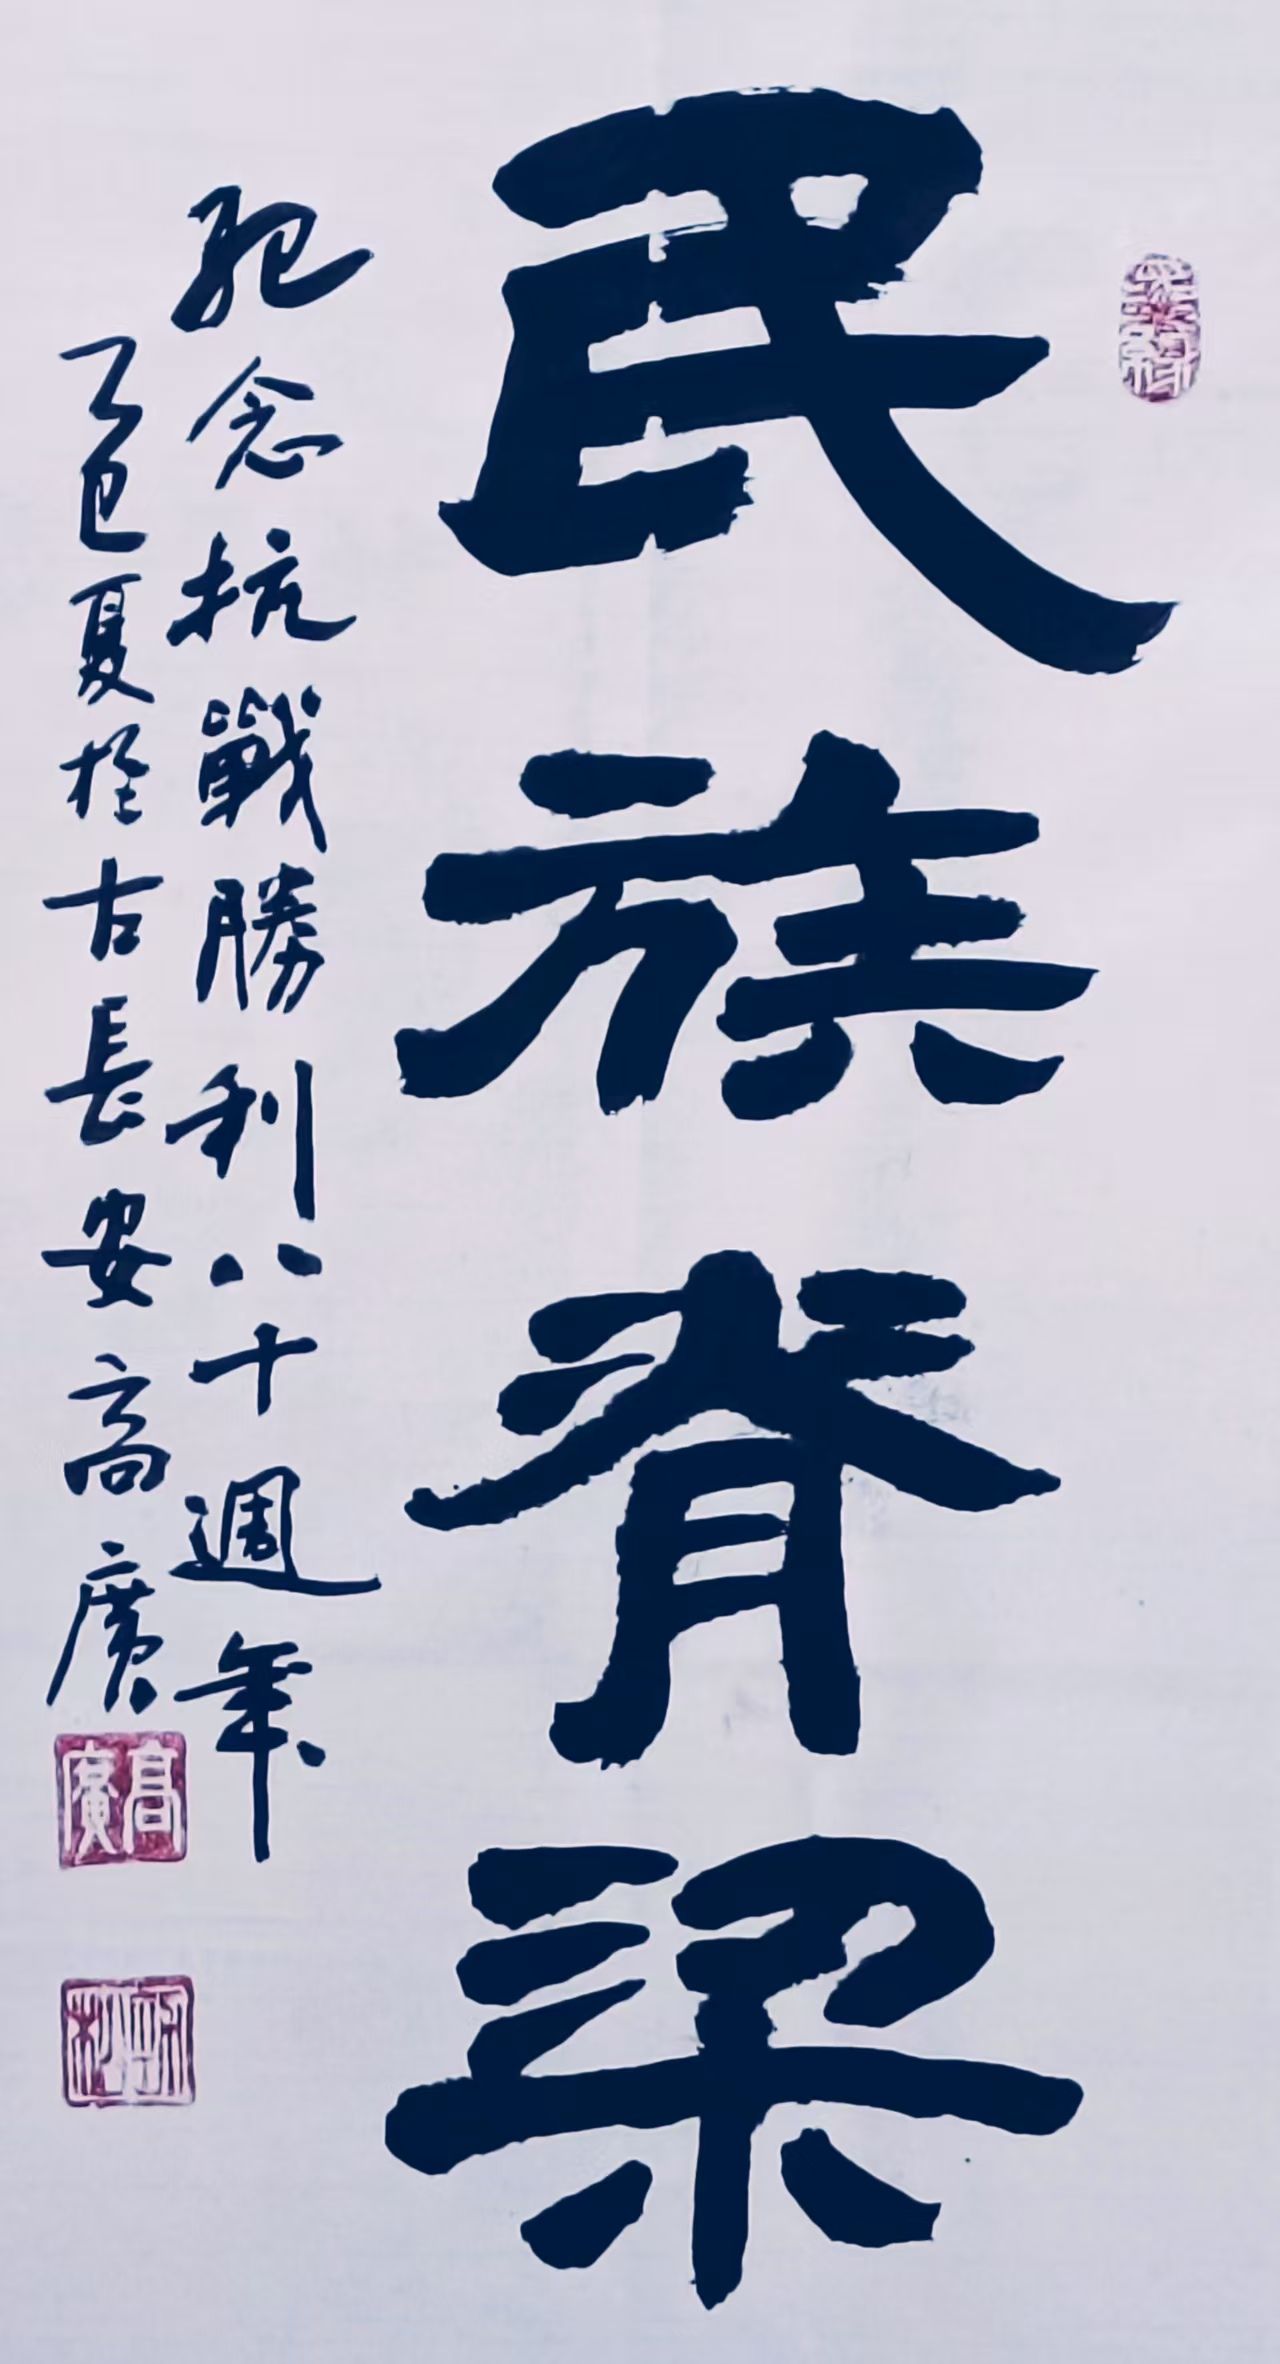 民族脊梁
紀念抗戰勝利八十週年
乙巳夏於古長安高廣
高廣